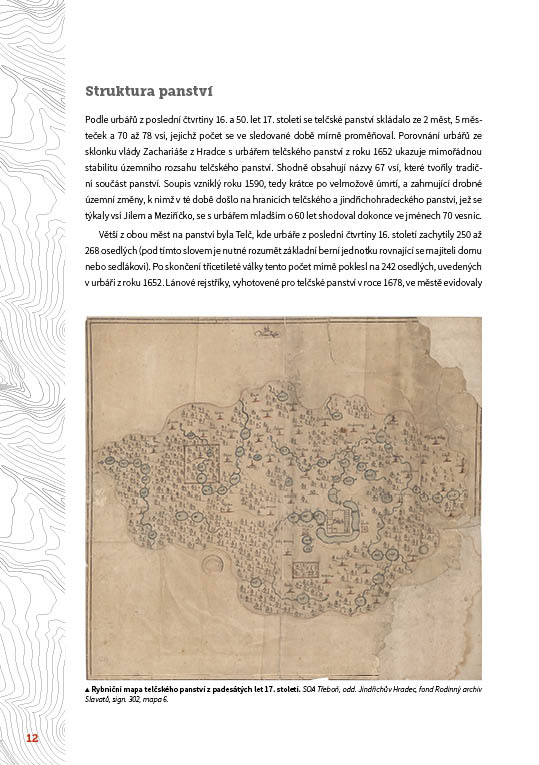 Struktura panství
Podle urbářů z poslední čtvrtiny 16. a 50. let 17. století se telčské panství skládalo ze 2 měst, 5 měs-
teček a 70 až 78 vsí, jejichž počet se ve sledované době mírně proměňoval. Porovnání urbářů ze
sklonku vlády Zachariáše z Hradce s urbářem telčského panství z roku 1652 ukazuje mimořádnou
stabilitu územního rozsahu telčského panství. Shodně obsahují názvy 67 vsí, které tvořily tradič-
ní součást panství. Soupis vzniklý roku 1590, tedy krátce po velmožově úmrtí, a zahrnující drobné
územní změny, k nimž v té době došlo na hranicích telčského a jindřichohradeckého panství, jež se
týkaly vsí Jilem a Meziříčko, se s urbářem mladším o 60 let shodoval dokonce ve jménech 70 vesnic.
Větší z obou měst na panství byla Telč, kde urbáře z poslední čtvrtiny 16. století zachytily 250 až
268 osedlých (pod tímto slovem je nutné rozumět základní berní jednotku rovnající se majiteli domu
nebo sedlákovi). Po skončení třicetileté války tento počet mírně poklesl na 242 osedlých, uvedených
v urbáři z roku 1652. Lánové rejstříky, vyhotovené pro telčské panství v roce 1678, ve městě evidovaly
▲ Rybniční mapa telčského panství z padesátých let 17. století. SOA Třeboň, odd. Jindřichův Hradec, fond Rodinný archiv
Slavatů, sign. 302, mapa 6.
12